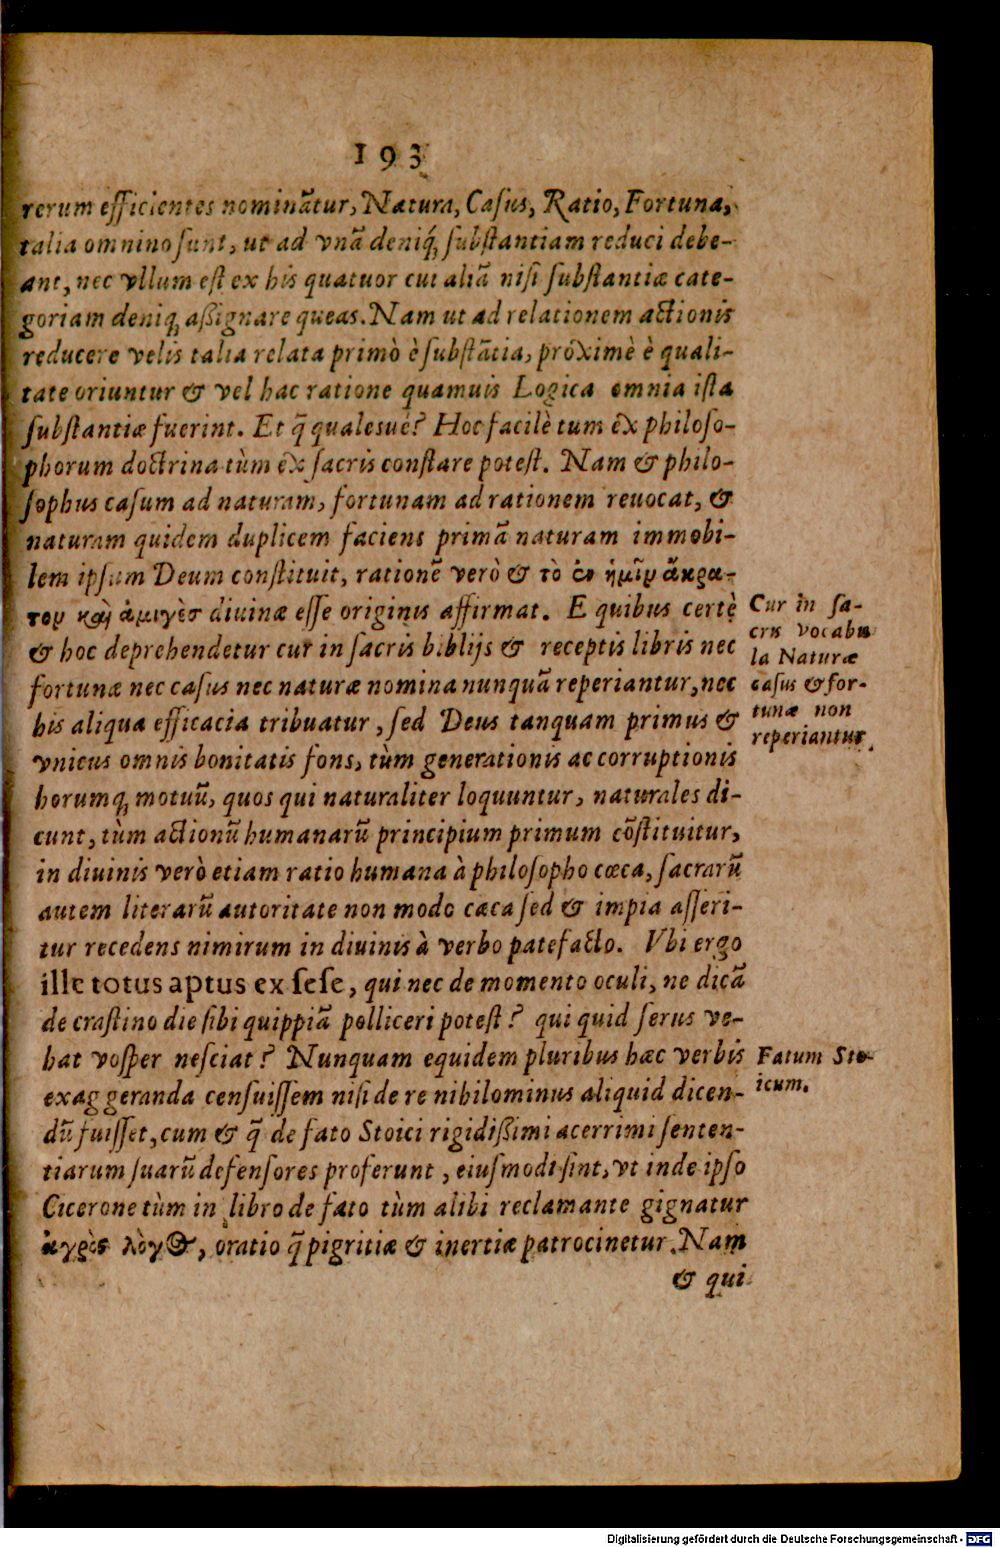 193
rerum efficientes nominãtur, Natura, Caſus, Ratio, Fortuna,
talia omnino ſunt, ut ad vnã deniq́; ſubſtantiam reduci debe-
ant, nec vllum eſt ex his quatuor cui aliã niſi ſubſtantiæ cate-
goriam deniq; aßignare queas. Nam ut ad relationem actionis
reducere velis talia relata primò è ſubſtãtia, próximè è quali-
tate oriuntur & vel hac ratione quamuis Logica omnia iſta
ſubſtantiæ fuerint. Et q̃ qualesue? Hoc facilè tum êx philoſo-
phorum doctrina tùm êx ſacris conſtare poteſt. Nam & philo-
ſophus caſum ad naturam, fortunam ad rationem reuocat, &
naturam quidem duplicem faciens primã naturam immobi-
lem ipſum Deum conſtituit, rationẽ verò & τὸ ἐν ἡμῖν ἄκρα-
τον καὶ ἀμιγὲς diuinæ eſſe originis affirmat. E quibus certè
& hoc deprehendetur cur in ſacris biblijs & receptis libris nec
fortunæ nec caſus nec naturæ nomina nunquã reperiantur, nec
his aliqua efficacia tribuatur, ſed Deus tanquam primus &
vnicus omnis bonitatis fons, tùm generationis ac corruptionis
horumq; motuũ, quos qui naturaliter loquuntur, naturales di-
cunt, tùm actionũ humanarũ principium primum cõſtituitur,
in diuinis verò etiam ratio humana à philoſopho cœca, ſacrarũ
autem literarũ autoritate non modo cæca ſed & impia aſſeri-
tur recedens nimirum in diuinis à verbo patefacto. Vbi ergo
ille totus aptus ex ſeſe, qui nec de momento oculi, ne dicã
de craſtino die ſibi quippiã polliceri poteſt? qui quid ſerus ve-
hat veſper neſciat? Nunquam equidem pluribus hæc verbis
exaggeranda cenſuiſſem niſi de re nihilominus aliquid dicen-
dũ fuiſſet, cum & q̃ de fato Stoici rigidißimi acerrimi ſenten-
tiarum ſuarũ defenſores proferunt, eiuſmodi ſint, vt inde ipſo
Cicerone tùm in libro de fato tùm alibi reclamante gignatur
ἀγρὸς λόγος, oratio q̃ pigritiæ & inertiæ patrocinetur. Nam
& qui
Cur in ſa-
cris vocabu
la Naturæ
caſus & for-
tunæ non
reperiantur.
Fatum Sto-
icum.
Digitalisierung gefördert durch die Deutsche Forschungsgemeinschaft - DFG